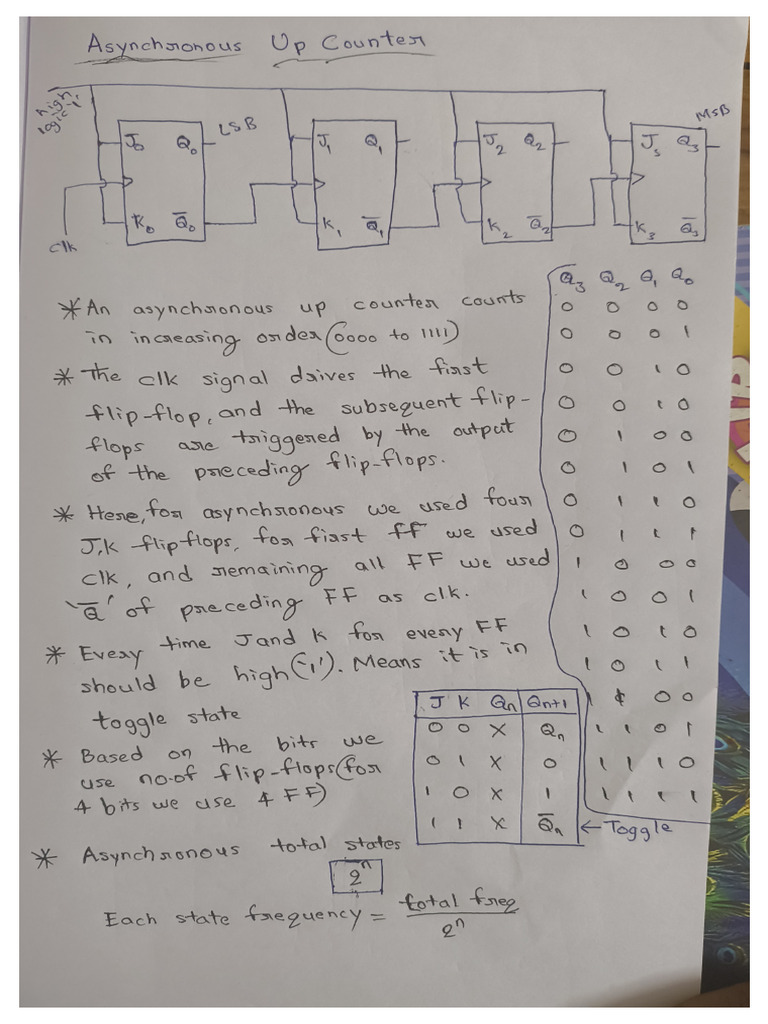 Asynchronous Up Counter
high
logic '1'
LSB
MSB
J0 Q0 J1 Q1 J2 Q2 J3 Q3
K0 Q̅0 K1 Q̅1 K2 Q̅2 K3 Q̅3
Clk
Q3 Q2 Q1 Q0
0 0 0 0
0 0 0 1
0 0 1 0
0 0 1 0
0 1 0 0
0 1 0 1
0 1 1 0
0 1 1 1
1 0 0 0
1 0 0 1
1 0 1 0
1 0 1 1
1 1 0 0
1 1 0 1
1 1 1 0
1 1 1 1
* An asynchronous up counter counts
in increasing order (0000 to 1111)
* The clk signal drives the first
flip-flop, and the subsequent flip-
flops are triggered by the output
of the preceding flip-flops.
* Here, for asynchronous we used four
J,K flipflops, for first ff we used
clk, and remaining all FF we used
'Q̅' of preceding FF as clk.
* Every time J and K for every FF
should be high ('1'). Means it is in
toggle state
* Based on the bits we
use no.of flip-flops (for
4 bits we use 4 FF)
J K Qn Qn+1
0 0 X Qn
0 1 X 0
1 0 X 1
1 1 X Q̅n ← Toggle
* Asynchronous total states
2^n
Each state frequency = total freq / 2^n